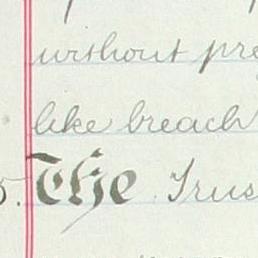 without pre
like breach
5. The Trus